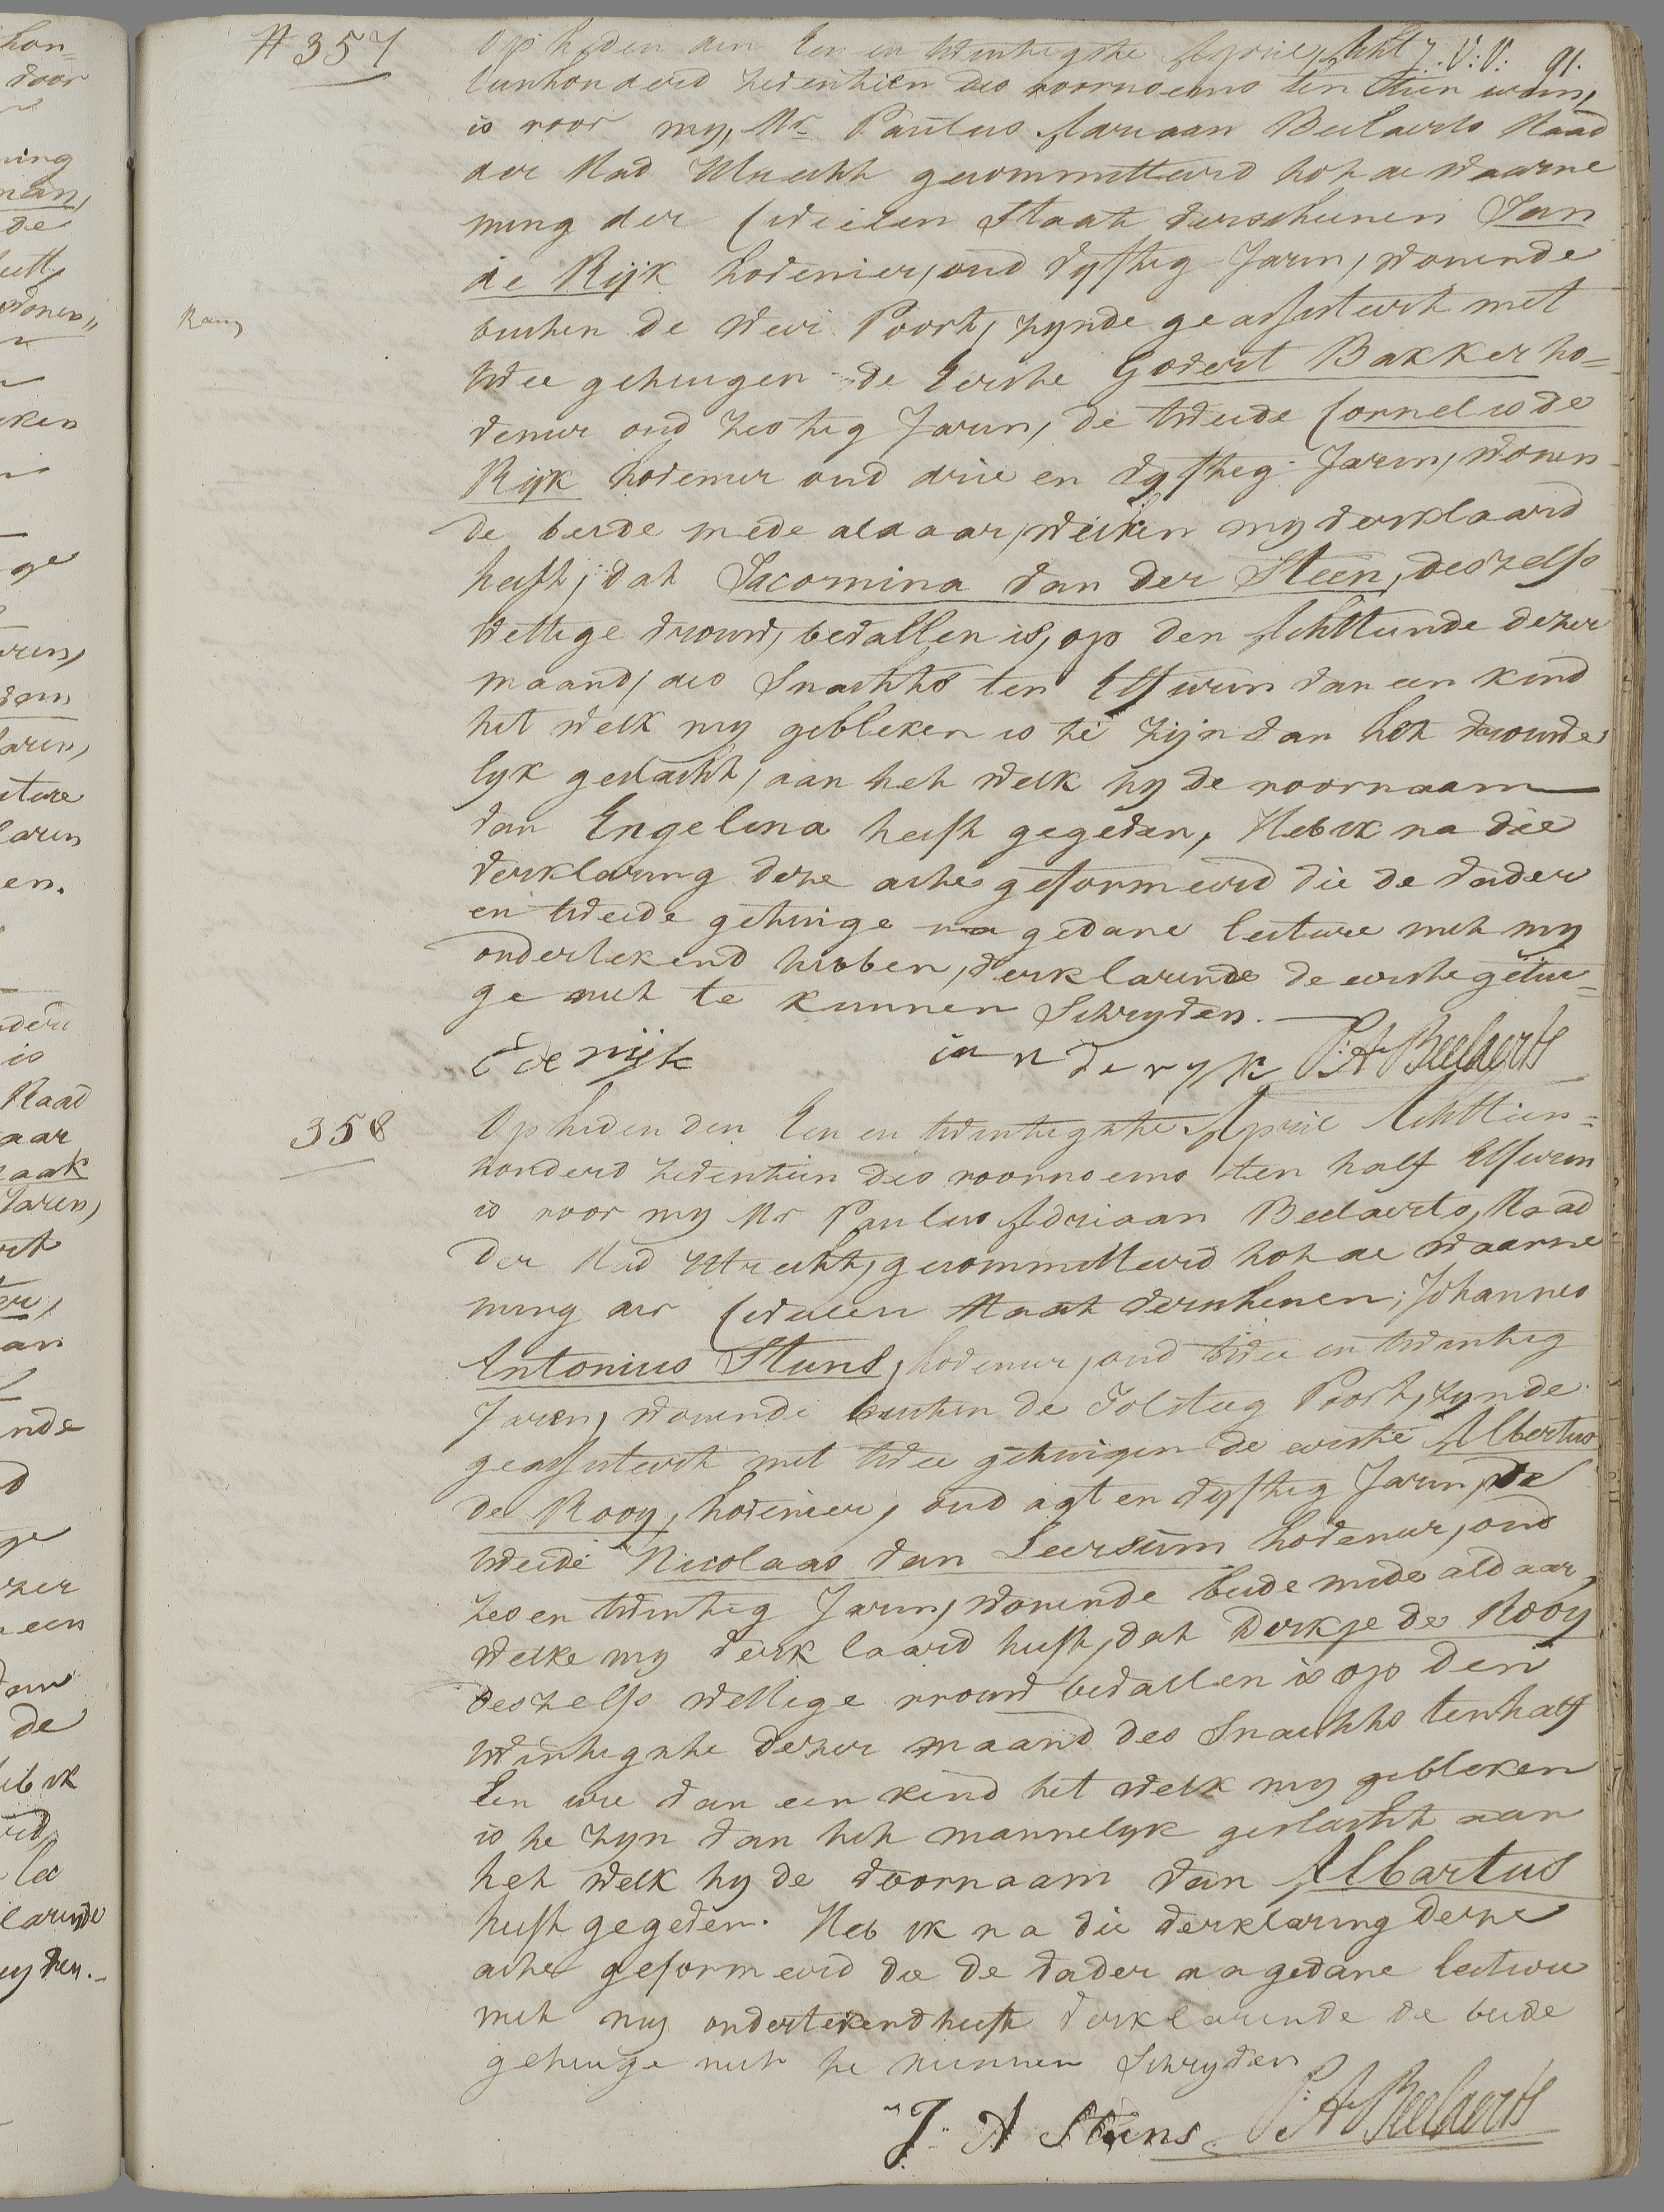 # 357
Op heden den Een en twintigste April, Acht J. V: V: 91.
tienhonderd zeventien des voornoens ten tien uren,
is voor my, Mr. Paulus Adriaan Beelaerts Raad
der Stad Utrecht gecommitteerd tot de waarne
ming der Civielen Staat verscheenen Jan
de Rijk hovenier, oud vyftig Jaren, wonende
buiten de Weerd Poort, zynde geassisteert met
twee getuigen de Eerste Godert Bakker ho=
venier oud zestig Jaren, de tweede Cornelis de
Rijk hovenier oud drie en vyftig Jaren, wonen
de beide mede aldaar, welken my verklaard
heeft, dat Jacomina van der Steen, deszelfs
wettige vrouw, bevallen is, op den Achttiende dezer
maand, des Snachts ten Elf uren van een kind
het welk my gebleken is te zijn van het vrouwe
lyk geslacht, aan het welk hy de voornaam
van Engelina heeft gegeven, Heb ik na die
verklaring deze acte geformeerd die de vader
en tweede getuige na gedane lecture met my
ondertekend hebben, verklarende de eerste getui=
ge niet te kunnen Schryven.
C de rijk jan de ryk P: A Beelaerts
358
Op heden den Een en twintigste April Achttien=
honderd zeventien des voornoens ten half Elf uren
is voor my Mr Paulus Adriaan Beelaerts, Raad
der Stad Utrecht, gecommitteerd tot de waarne
ming der Civielen Staat verschenen, Johannes
Antonius Stuns, hovenier, oud twee en twintig
Jaren, wonende buiten de Tolsteeg Poort, zynde
geassisteert met twee getuigen de eerste Albertus
de Rooy, hovenier, oud agt en vyftig Jaren, de
tweede Nicolaas van Leersum hovenier, oud
zes en twintig Jaren, wonende beide mede aldaar,
welke my verklaard heeft, dat Derkje de Rooy
deszelfs wettige vrouw bevallen is op den
twintigste dezer maand des Snachts ten half
Een ure van een kind het welk my gebleken
is te zyn van het mannelyk geslacht aan
het welk hy de voornaam van Albartus
heeft gegeven. Heb ik na die verklaring deze
acte geformeerd die de vader na gedane lecture
met my ondertekend heeft verklarende de beide
getuige niet te kunnen Schryven
J. A Stuns P: A Beelaerts